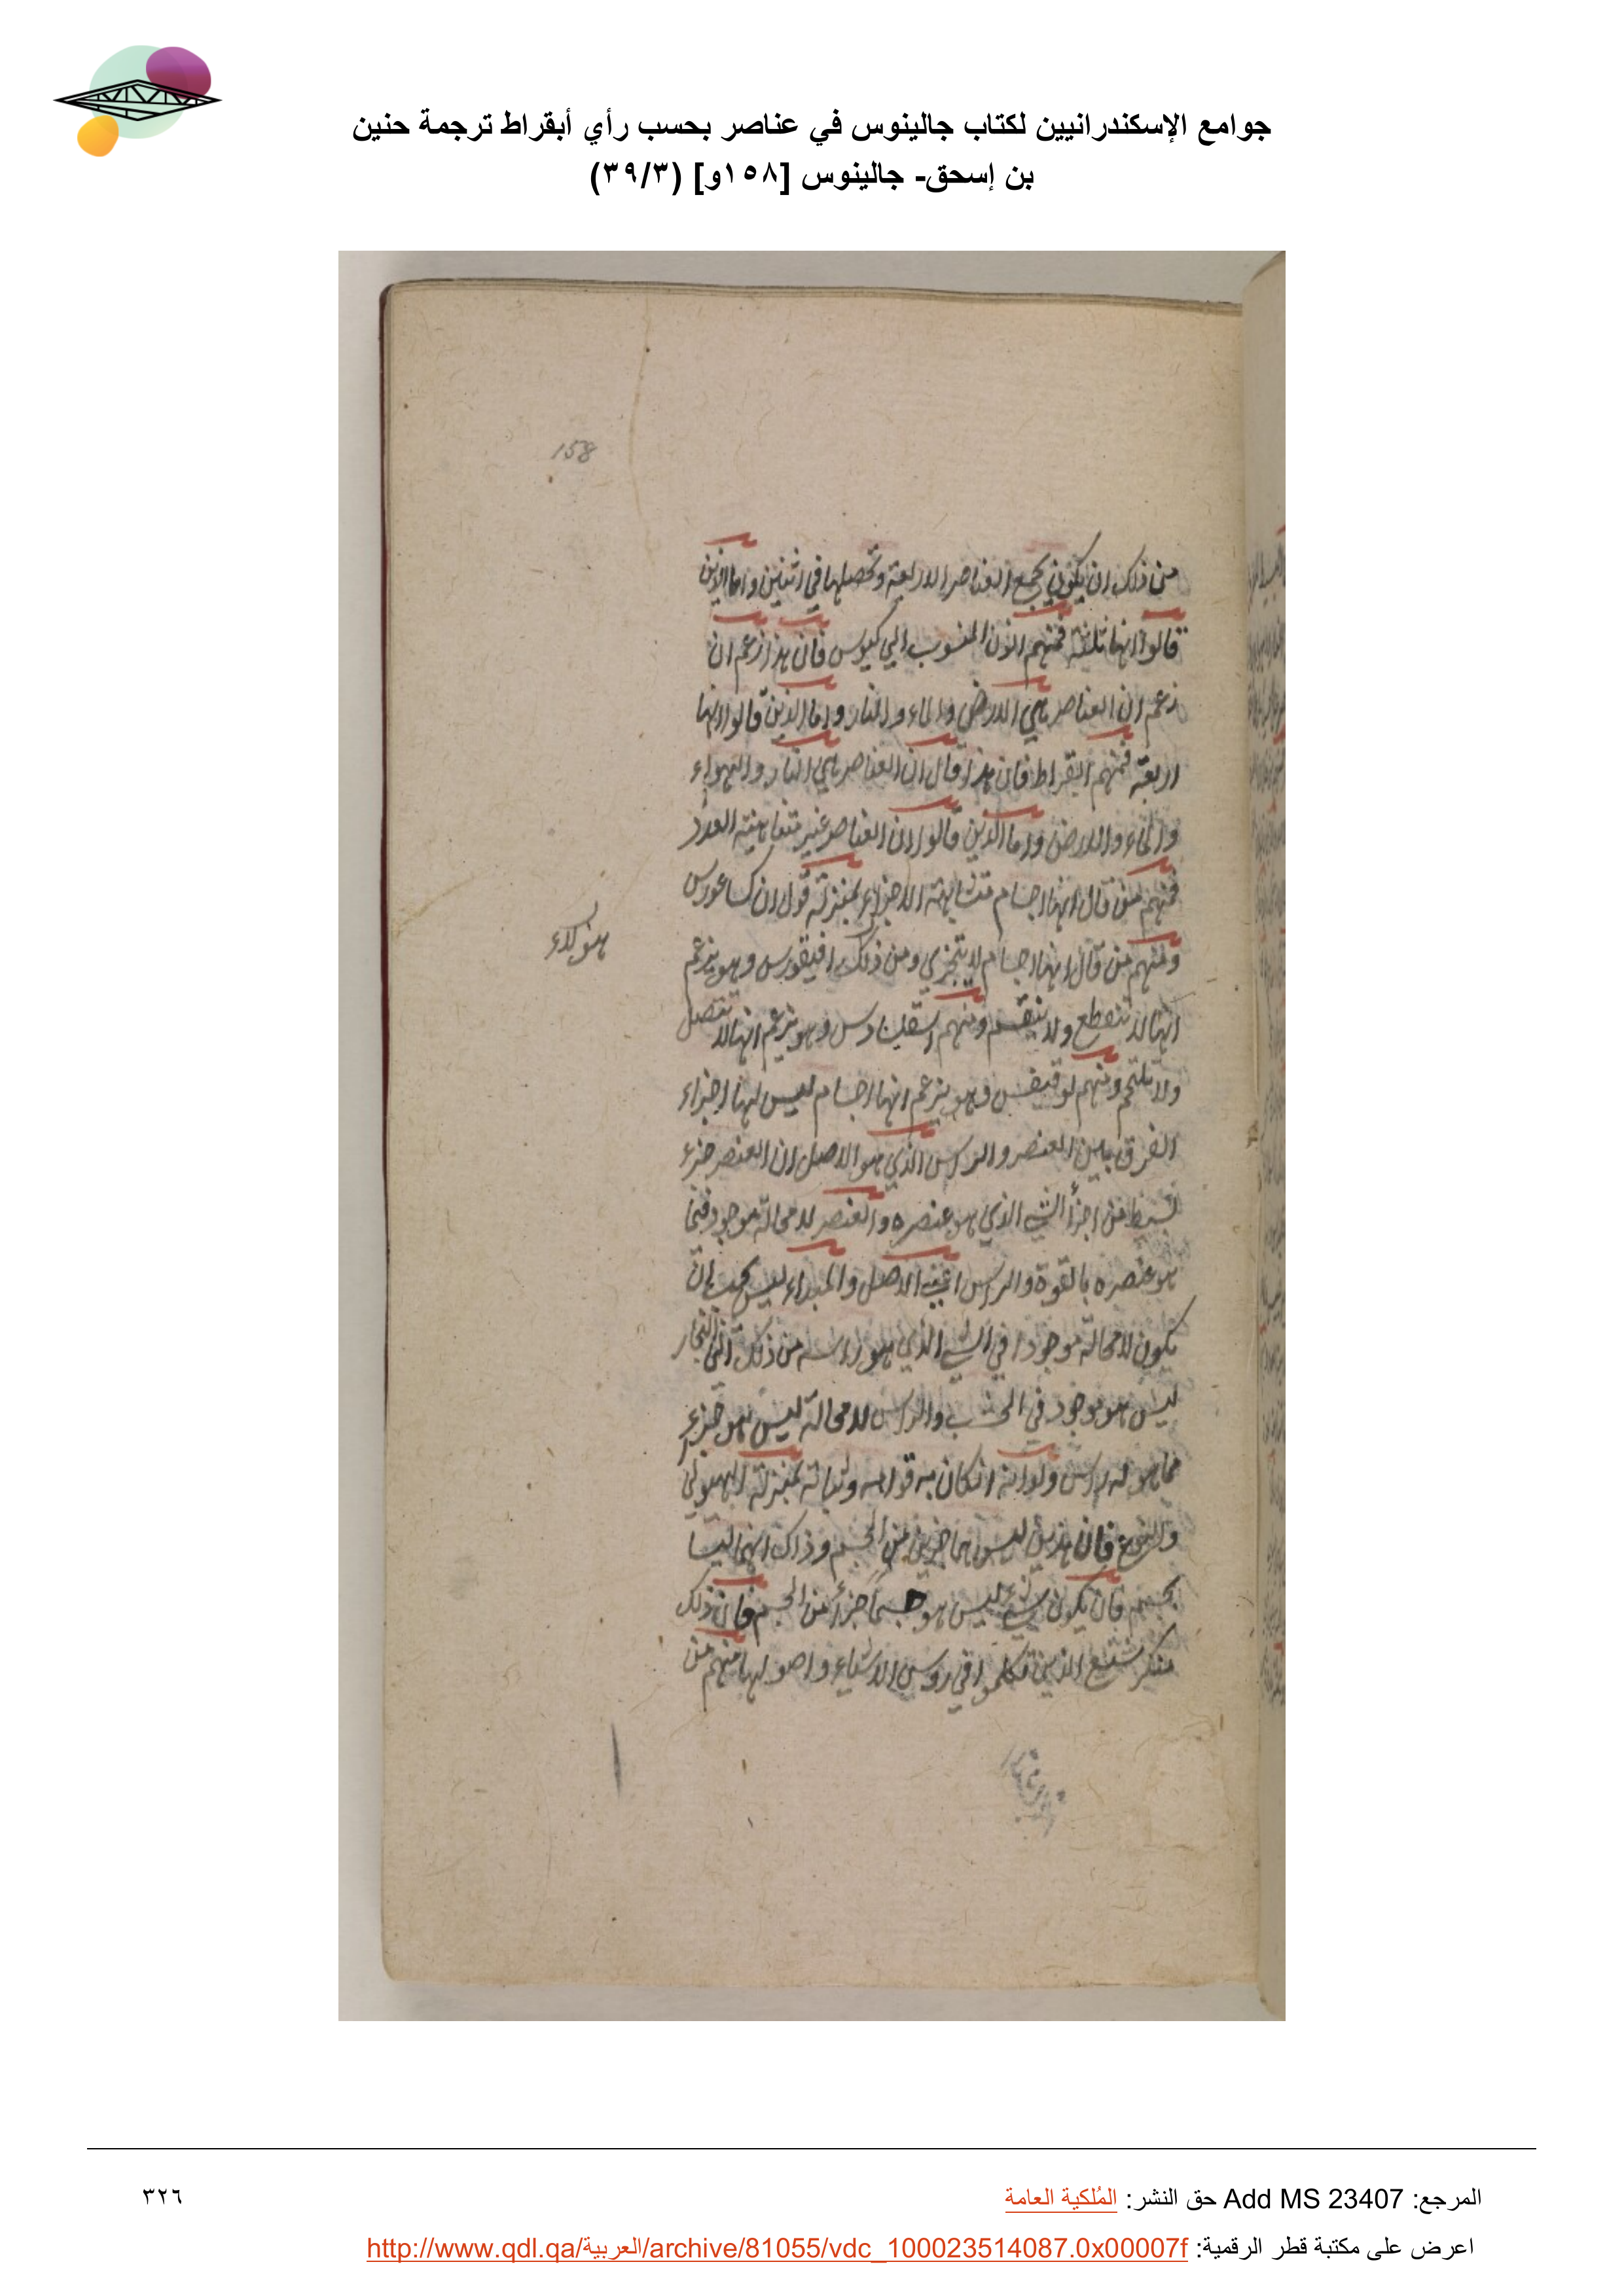 جوامع الإسكندرانيين لكتاب جالينوس في عناصر بحسب رأي أبقراط ترجمة حنين
بن إسحق- جالينوس [١٥٨و] (٣٩/٣)
158
من ذلك ان يكون يجمع العناصر الاربعة وتحصلها في اثنين واما الذين
قالوا انها ثلثة فمنهم انون المنسوب الي كيوس فان هذا زعم ان
زعم ان العناصر هي الارض والماء والنار واما الذين قالوا انها
اربعة فمنهم ابقراط فان هذا قال ان العناصر هي النار والهواء
والماء والارض واما الذين قالوا ان العناصر غير متناهية العدد
فمنهم من قال انها اجسام متشابهة الاجزاء بمنزلة قول ان كساغورس
ومنهم من قال انها اجسام لا يتجزي ومن ذلك افيقورس وهو يزعم
هو كذاء
انها لا تنقطع ولا تنقسم ومنهم اسقلبيادس وهو يزعم انها لا تتصل
ولا تلتحم ومنهم لوقيفس وهو يزعم انها اجسام ليس لها اجزاء
الفرق بين العنصر والراس الذي هو الاصل ان العنصر جزء
بسيط من اجزأ الشي الذي هو عنصره والعنصر لا محالة موجود فيما
هو عنصره بالقوة والراس اعني الاصل والمبداء ليس يجب ان
يكون لا محالة موجودا في الشي الذي هو راسه من ذلك ان النجار
ليس هو موجود في الخشب والراس لا محالة ليس هو جزء
مما هو له راس ولو انه انكان به قوامه وثباته بمنزلة الهيولي
والنوع فان هذين ليس هما جزئين من الجسم وذاك انهما ليسا
بجسم فان يكون شيء ليس هو جسماً جزأً من الجسم فان ذلك
منكر شنع الذين تكلموا في روس الاشياء واصولها منهم من
المرجع: Add MS 23407 حق النشر: المُلكية العامة
٣٢٦
اعرض على مكتبة قطر الرقمية: http://www.qdl.qa/العربية/archive/81055/vdc_100023514087.0x00007f